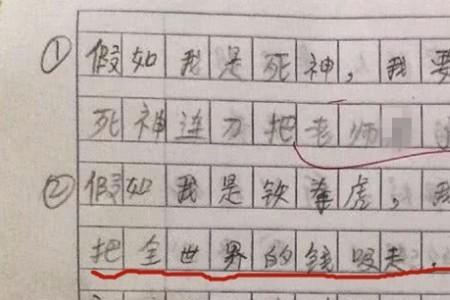 ① 假如我是死神，我要
死神连刀把老师
② 假如我是铁拳虎，我
把全世界的钱吸走.